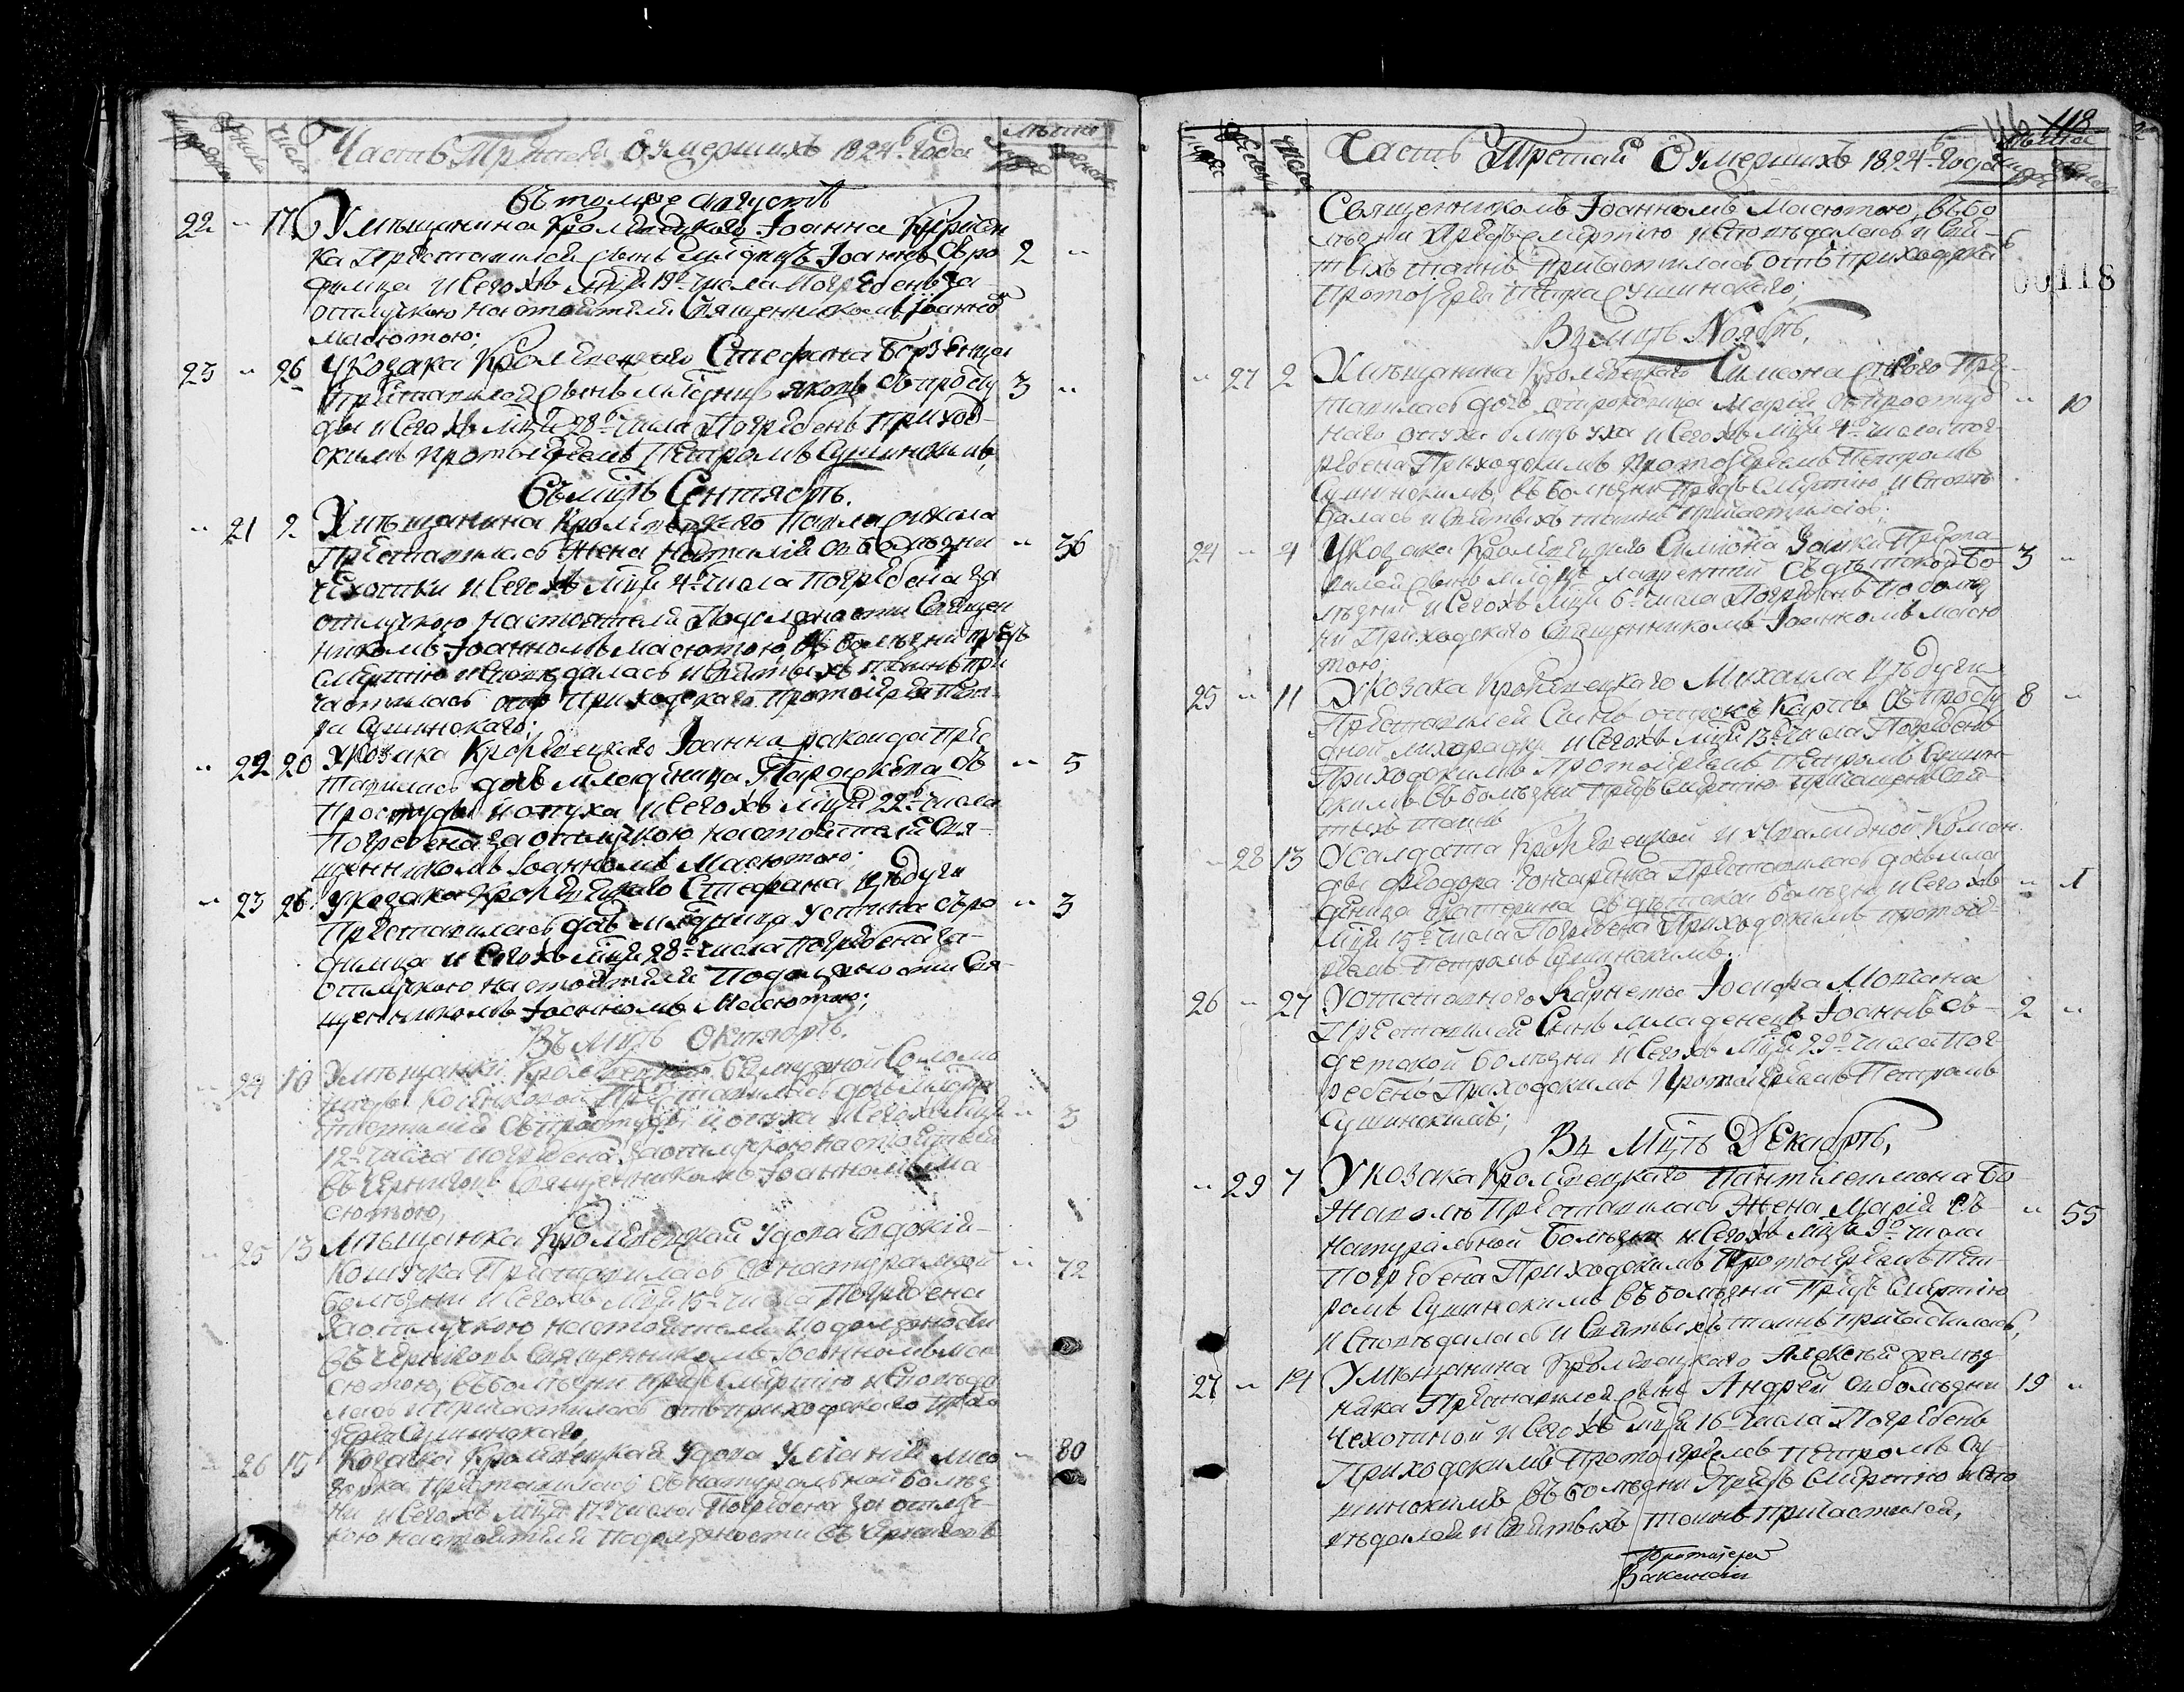 Часть Третая О умершихъ 1824го года
лѣто
въ томже августѣ
22 " 17 Умѣщанина Кролевецкого Іоанна
ка Преставился сынъ младенецъ Іоаннъ Съ ро 2 "
димца и Сего хъ мця 19го числа Погребенъ за
отлучкою настоятеля Священникомъ Іоанном
Масютою;
23 " 26 Укозака Кролевецкаго Стефана Борзенца
Преставился сынъ младенецъ яковъ Съ просту 3 "
ды и Сего хъ мця 28го числа Погребенъ приход
скимъ протоіереемъ Петромъ Сушинскимъ,
Въ мцѣ Сентябрѣ.
" 21 2 Умѣщанина Кролевецкого Павла
Преставилась жена Наталія отъ болѣзни " 36
чехотки и Сего хъ мця 4го числа погребена за
отлучкою настоятеля Подолжности Священ
никомъ Іоанномъ Масютою въ болѣзни предъ
смертію исповѣдалась и Святыхъ таинъ при
частилась отъ Приходскаго протоіерея Пет
ра Сушинского;
" 22 20 Укозака Кролевецкого Іоанна ракоида Пре
ставилась дочь младеница Параскева Съ " 5
Простуды и опуха и Сего хъ мця 22го числа
Погребена за отлучкою настоятеля Свя-
щенникомъ Іоанномъ Масютою.
" 23 26 Укозака Кролевецкого Стефана Цѣдуги
Преставилась дочь младеница Устина Съ ро " 3
димца и Сего хъ мця 28го числа погребена за-
отлучкою настоятеля Подолжности Свя-
щенникомъ Іоанномъ Масютою;
Въ Мцѣ Октябрѣ.
" 24 10 Умѣщанки Кролевецкой Солома
Преставилась дочь младен
Съ простуды и опуха и Сего хъ мця " 3
12го числа погребена за отлучкою настоятеля
въ Черниговъ Священникомъ Іоанномъ Ма
сютою,
" 25 13 Мѣщанка Кролевецкая Удова Евдокія
Преставилась Съ натуралной " 72
болѣзни и Сего хъ мця 15го числа Погребена
за отлучкою настоятеля Подолжности
въ Черниговъ Священникомъ Іоанномъ Ма
сютою, въ болѣзни предъ смертію исповѣда
лась и Причастилась отъ приходскаго прото
іерея Сушинскаго,
" 26 15 Козачка Кролевецкая Удова Уліанія
Преставилась Съ натуральной болѣз " 80
ни и Сего хъ мця 17го числа Погребена за отлуч-
кою настоятеля Подолжности въ Черниговъ
118
Часть Третая О умершихъ 1824го года
00118
Священникомъ Іоанномъ Масютою, въ бо
лѣзни Предъ смертію исповѣдалась и Свя-
тыхъ таинъ Причастилась отъ приходскаго
Протоіерея Петра Сушинского;
Въ мцѣ Ноябрѣ,
" 27 2 Умѣщанина Кролевецкого Симеона Пре-
ставилась дочь отроковица Марія Съ простуд " 10
наго опуха и Сего хъ мця 4го числа пог-
ребена Приходскимъ Протоіереемъ Петромъ
Сушинскимъ, въ болѣзни Предъ Смертію исповѣ
далась и Святыхъ таинъ причастилась;
24 " 4 Укозака Кролевецкого Симеона Заики Преста
вился сынъ младенецъ Лаврентій Съ дѣтской бо 3 "
лѣзни и Сего хъ мця 6го числа Погребенъ по болѣз
ни Приходского Священникомъ Іоанномъ Масю
тою;
25 " 11 Укозака Кролевецкаго Михаила Цѣдуги
Преставился Сынъ отрокъ Карпъ Съ просту 8 "
дной лихорадки и Сего хъ мця 13го числа Погребенъ
Приходскимъ Протоіереемъ Петромъ Сушин-
скимъ въ болѣзни Предъ смертію Причащенъ Свя-
тыхъ таинъ
" 28 13 Усалдата Кролевецкой Инвалидной Коман
ды Феодора Гончаренка Преставилась дочь мла
деница Екатерина Съ дѣтской болѣзни и Сего хъ " 1
мця 15го числа Погребена Приходскимъ протоіе-
реемъ Петромъ Сушинскимъ.
26 " 27 Уотставного Карнета Іосифа Мончана
Преставился Сынъ младенецъ Іоаннъ Съ 2 "
детской болѣзни и Сего хъ мця 29го числа Пог-
ребенъ Приходскимъ Протоіереемъ Петромъ
Сушинскимъ;
Въ Мцѣ Декабрѣ,
" 29 7 Укозака Кролевецкаго Пантилеимона Бо
Преставилась Жена Марія Съ " 55
натуральной болѣзни и Сего хъ мця 9го числа
Погребена Приходскимъ Протоіереемъ Пет-
ромъ Сушинскимъ въ болѣзни Предъ Смертію
исповѣдалась и Святыхъ таинъ причастилась,
27 " 14 Умѣщанина Кролевецкаго Алексѣя
ника Преставился сынъ Андрей отъ болѣзни 19 "
Чехотной и Сего хъ мця 16го числа Погребенъ
Приходскимъ Протоіереемъ Петромъ Су-
шинскимъ въ болѣзни Предъ Смертію испо
вѣдался и Святыхъ таинъ причастился,
Протоіерей